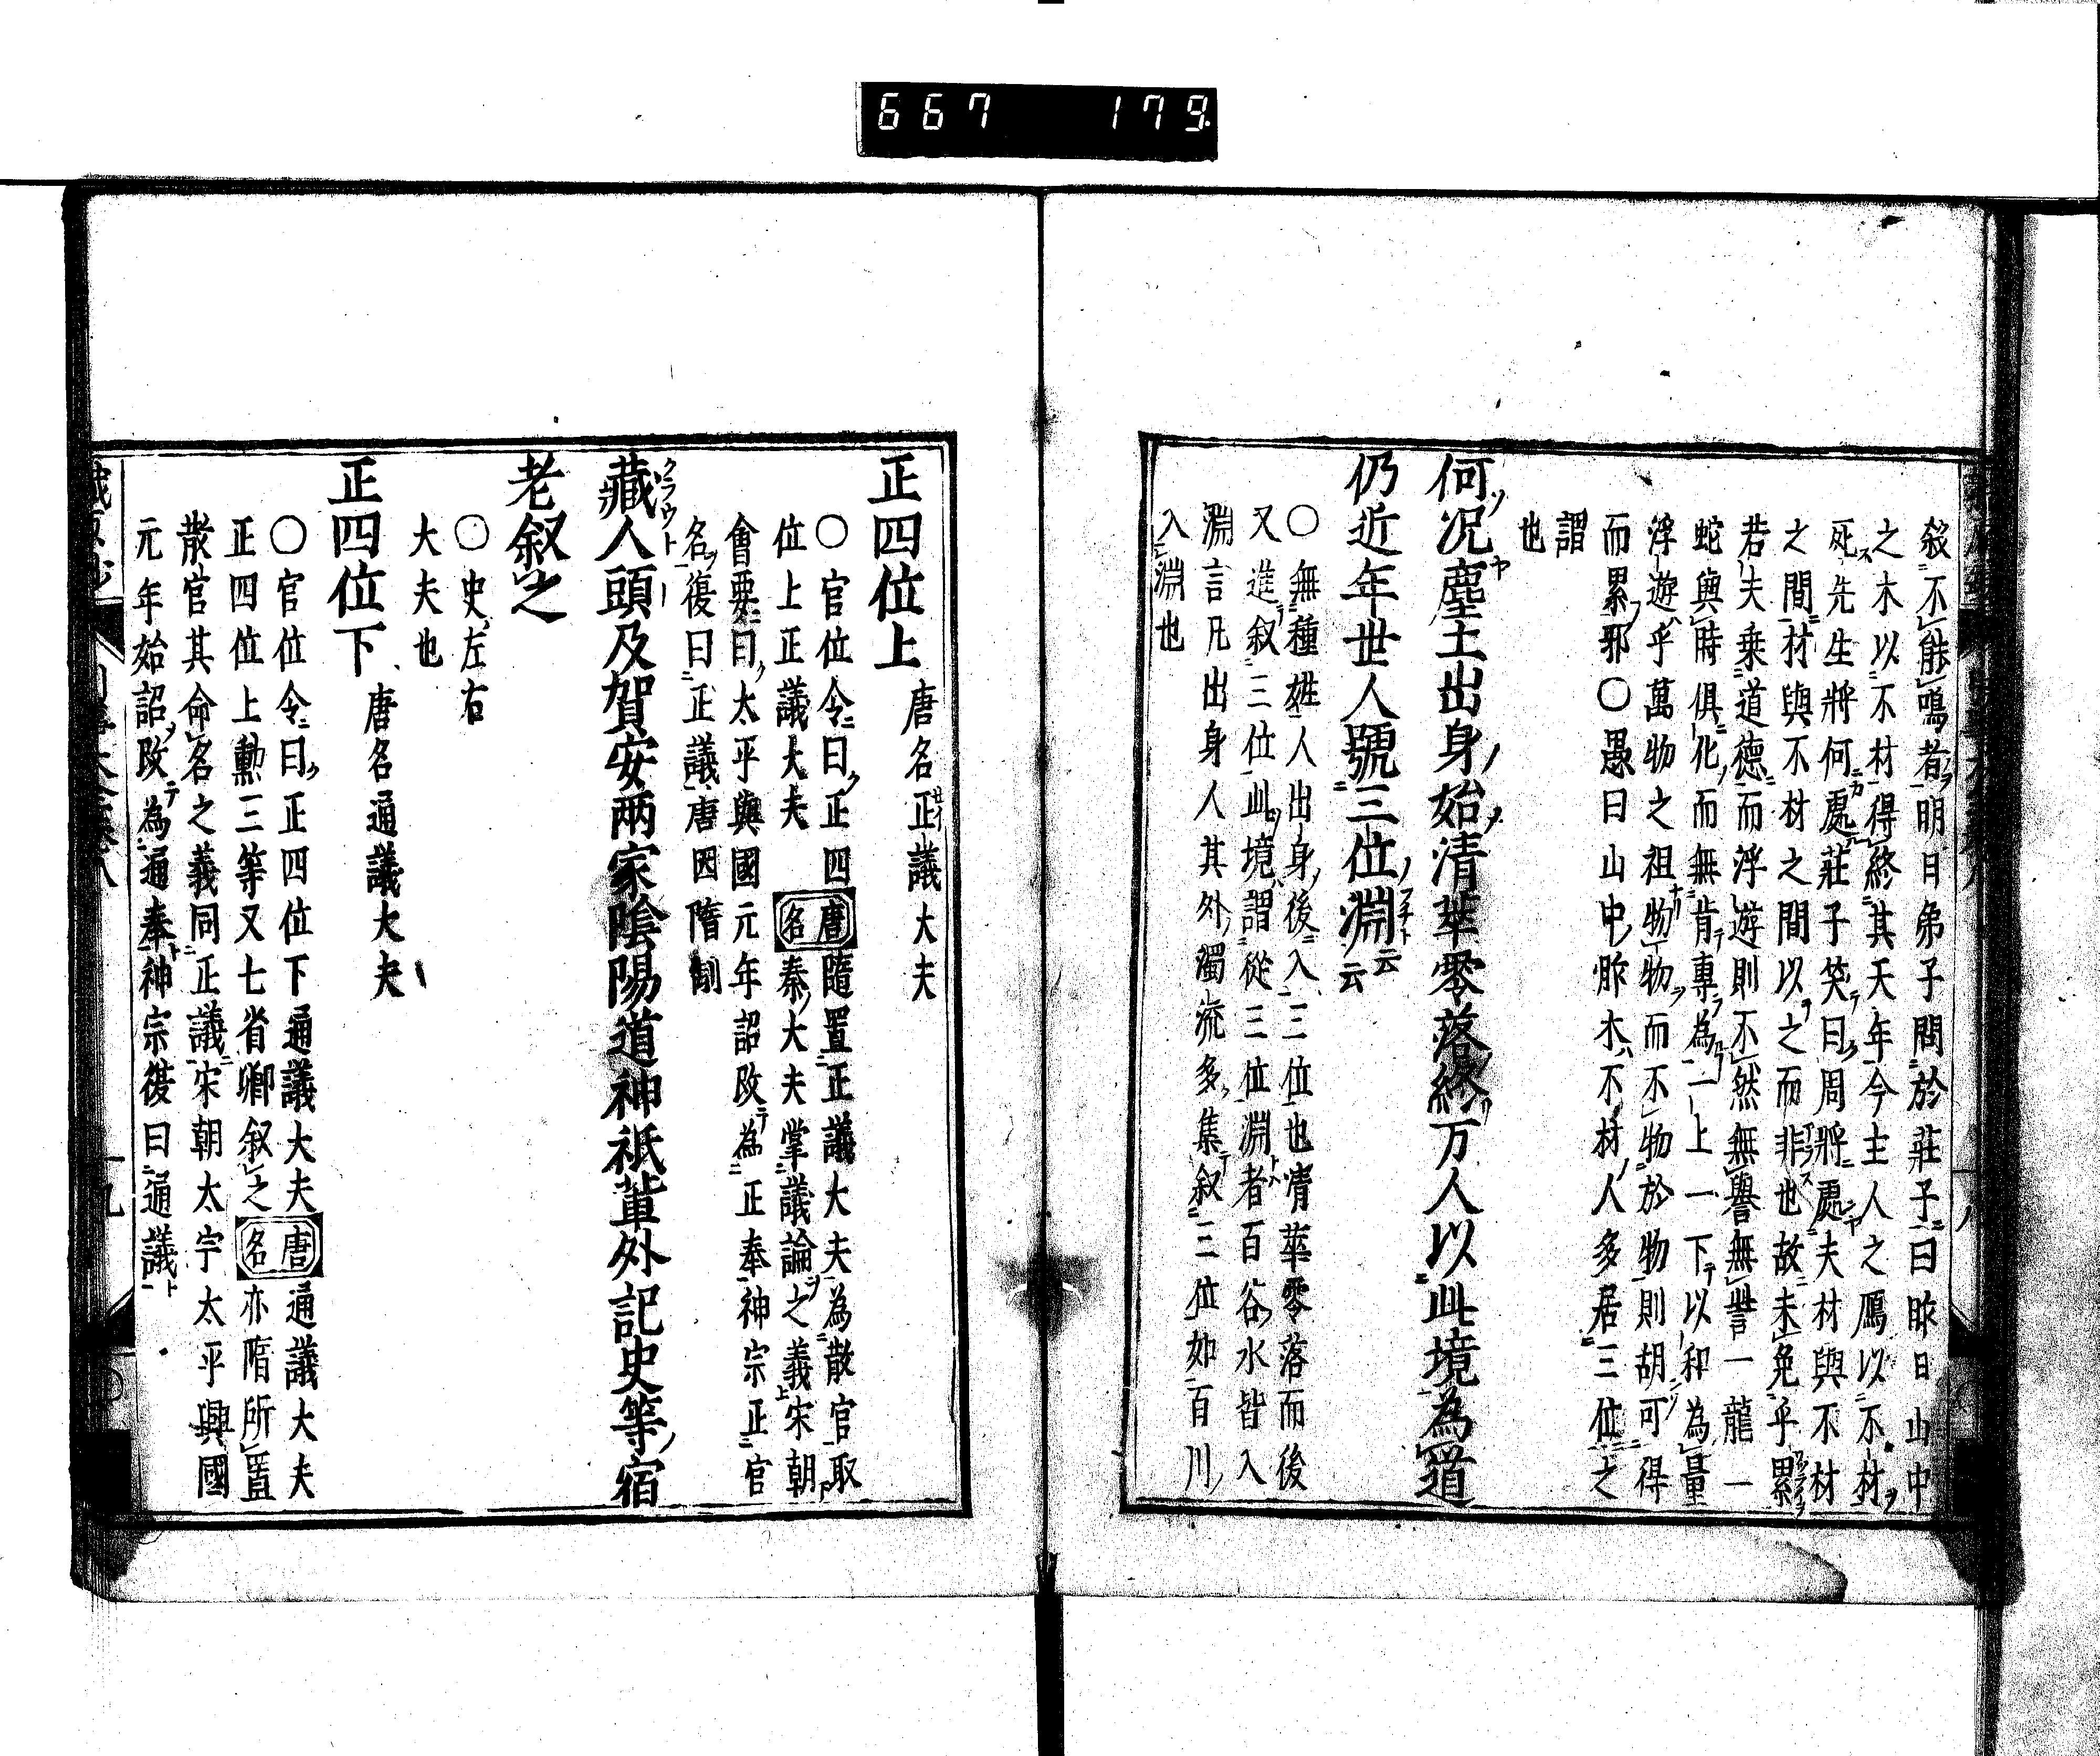 667 179
殺不能鳴者明日弟子問於莊子曰昨日山中
之木以不材得終其天年今主人之鴈以不材
死先生將何處莊子笑曰周將處夫材與不材
之間材與不材之間以之而非也故未免乎累
若夫乗道德而浮遊則不然無譽無訾一龍一
蛇與時俱化而無肯專為一上一下以和為量
浮遊乎萬物之祖物物而不物於物則胡可得
而累邪〇愚曰山中昨木不材人多居三位之
謂
也
何況塵土出身始清華零落終万人以此境為道
仍近年世人號三位淵云云
〇無種姓人出身後入三位也清華零落而後
又進叙三位此境謂從三位淵者百谷水皆入
淵言凡出身人其外濁流多集叙三位如百川
入淵也
正四位上 唐名正議大夫
〇官位令曰正四位上正議大夫 唐名 隨置正議大夫為散官取秦大夫掌議論之義宋朝
會要曰太平興國元年詔改為正奉神宗正官
名復曰正議唐因隋制
藏人頭及賀安兩家陰陽道神祇軰外記史等宿
老叙之
〇史左右
大夫也
正四位下 唐名通議大夫
〇官位令曰正四位下通議大夫 唐名 通議大夫
正四位上勳三等又七省卿叙之 亦隋所置
散官其命名之義同正議宋朝太宇太平興國
元年始詔改為通奉神宗復曰通議